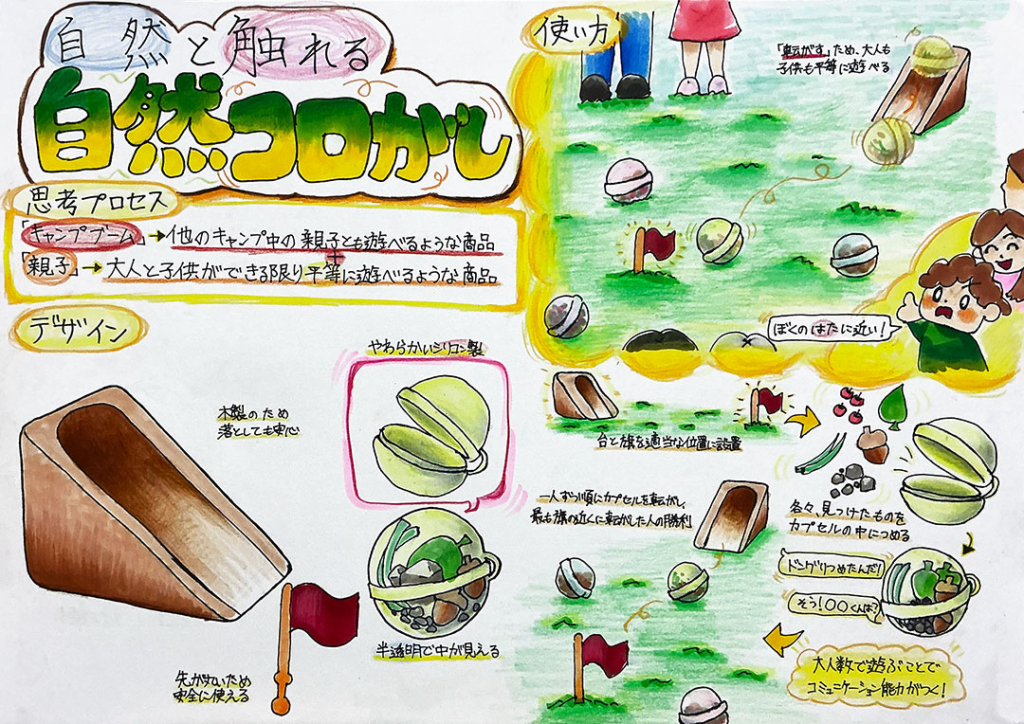 自然と触れる
自然コロがし
思考プロセス
「キャンプブーム」→他のキャンプ中の親子とも遊べるような商品
+
「親子」→大人と子供ができる限り平等に遊べるような商品
デザイン
木製のため
落としても安心
やわらかいシリコン製
半透明で中が見える
先が丸いため
安全に使える
使い方
「転がす」ため、大人も
子供も平等に遊べる
ぼくのはたに近い!
台と旗を適当な位置に設置
各々、見つけたものを
カプセルの中につめる
ドングリつめたんだ!
そう!〇〇くんは?
大人数で遊ぶことで
コミュニケーション能力がつく!
一人ずつ順にカプセルを転がし、
最も旗の近くに転がした人の勝利